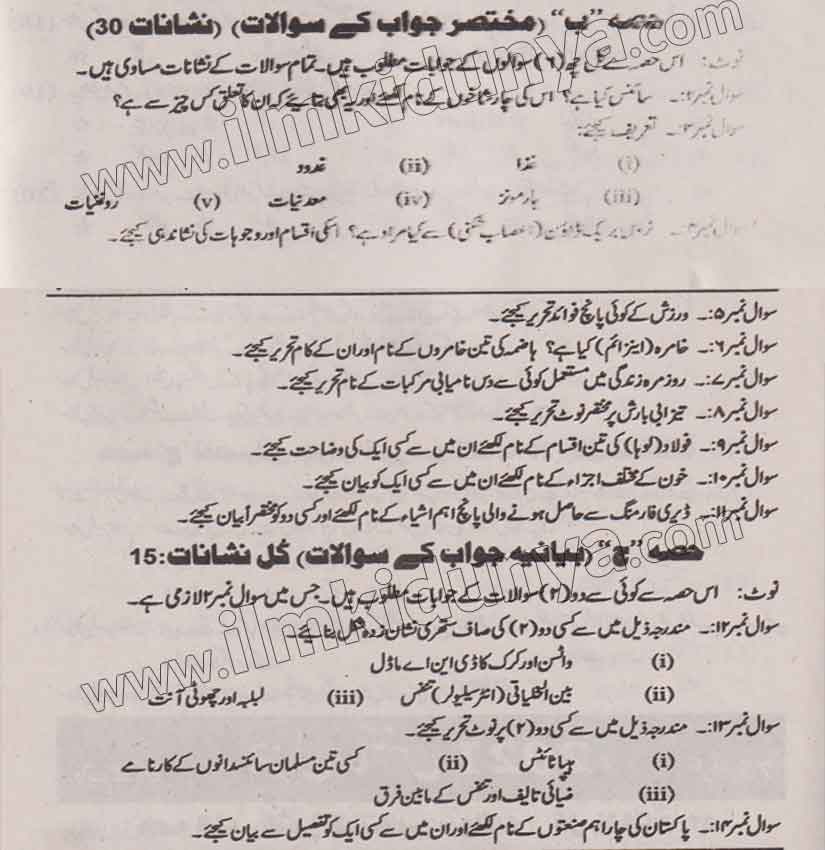 حصہ ”ب“ (مختصر جواب کے سوالات) (نشانات 30)
نوٹ: اس حصہ سے کل چھ (۶) سوالوں کے جوابات مطلوب ہیں۔ تمام سوالات کے نشانات مساوی ہیں۔
سوال نمبر۲:۔ سائنس کیا ہے؟ اس کی چار شاخوں کے نام لکھئے اور یہ بھی بتایئے کہ ان کا تعلق کس چیز سے ہے؟
سوال نمبر۳:۔ تعریف کیجئے:
(i) غذا (ii) غدود
(iii) ہارمونز (iv) معدنیات (v) روغنیات
سوال نمبر۴:۔ نروس بریک ڈاؤن (اعصاب شکنی) سے کیا مراد ہے؟ اسکی اقسام اور وجوہات کی نشاندہی کیجئے۔
سوال نمبر۵:۔ ورزش کے کوئی پانچ فوائد تحریر کیجئے۔
سوال نمبر۶:۔ خامرہ (اینزائم) کیا ہے؟ ہاضمہ کی تین خامروں کے نام اور ان کے کام تحریر کیجئے۔
سوال نمبر۷:۔ روزمرہ زندگی میں مستعمل کوئی سے دس نامیاتی مرکبات کے نام تحریر کیجئے۔
سوال نمبر۸:۔ تیزابی بارش پر مختصر نوٹ تحریر کیجئے۔
سوال نمبر۹:۔ فولاد (لوہا) کی تین اقسام کے نام لکھئے ان میں سے کسی ایک کی وضاحت کیجئے۔
سوال نمبر۱۰:۔ خون کے مختلف اجزاء کے نام لکھئے ان میں سے کسی ایک کو بیان کیجئے۔
سوال نمبر۱۱:۔ ڈیری فارمنگ سے حاصل ہونے والی پانچ اہم اشیاء کے نام لکھئے اور کسی دو کو مختصراً بیان کیجئے۔
حصہ ”ج“ (بیانیہ جواب کے سوالات) کُل نشانات:15
نوٹ: اس حصہ سے کوئی سے دو (۲) سوالات کے جوابات مطلوب ہیں۔ جس میں سوال نمبر۱۲ لازمی ہے۔
سوال نمبر۱۲:۔ مندرجہ ذیل میں سے کسی دو (۲) کی صاف ستھری نشان زدہ شکل بنایئے۔
(i) واٹسن اور کرک کا ڈی این اے ماڈل
(ii) بین الخلیاتی (انٹرسیلولر) تنفس (iii) لبلبہ اور چھوٹی آنت
سوال نمبر۱۳:۔ مندرجہ ذیل میں سے کسی دو (۲) پر نوٹ تحریر کیجئے۔
(i) ہیپاٹائٹس (ii) کسی تین مسلمان سائنسدانوں کے کارنامے
(iii) ضیائی تالیف اور تنفس کے مابین فرق
سوال نمبر۱۴:۔ پاکستان کی چار اہم صنعتوں کے نام لکھئے اور ان میں سے کسی ایک کو تفصیل سے بیان کیجئے۔
www.ilmkidunya.com
www.ilmkidunya.com